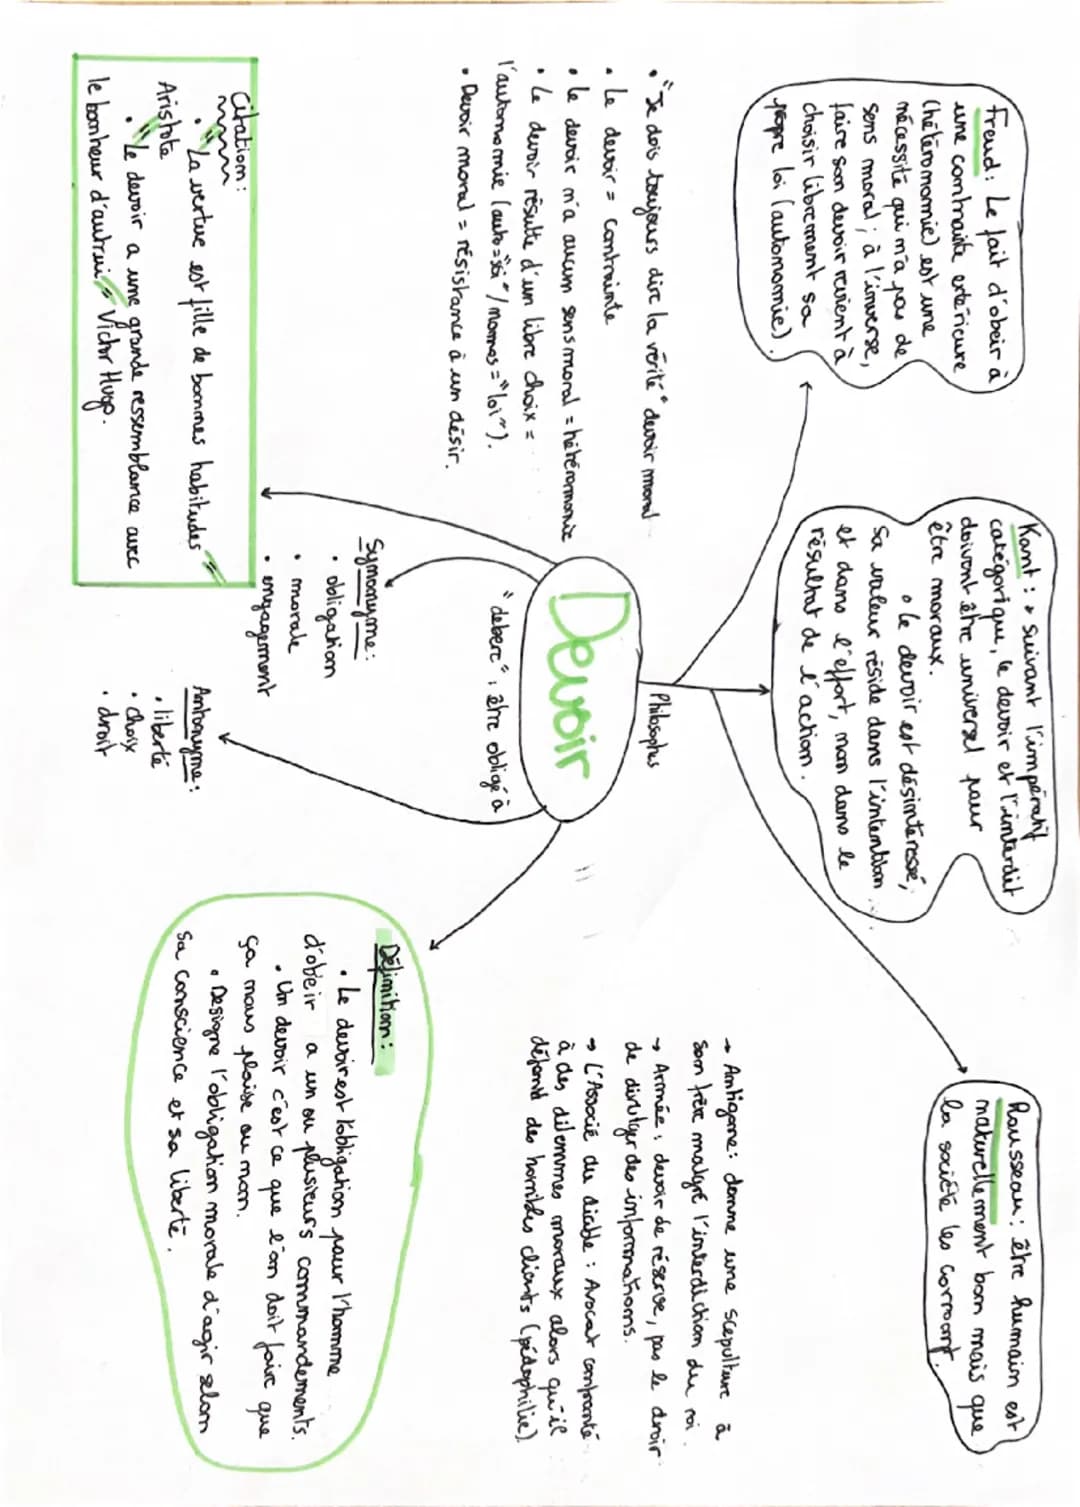 Freud : Le fait d'obeir à
une contrainte extérieure
(hétéronomie) est une
nécessité qui n'a pas de
sens moral ; à l'inverse,
faire son devoir revient à
choisir librement sa
propre loi (autonomie).
Kant : • suivant l'impératif
catégorique, le devoir et l'interdit
doivent être universel pour
être moraux.
• le devoir est désintéressé,
sa valeur réside dans l'intention
et dans l'effort, non dans le
résultat de l'action.
Rousseau : être humain est
naturellement bon mais que
la société les corrompt.
• "Je dois toujours dire la vérité" devoir moral
• Le devoir = contrainte
• le devoir n'a aucun sens moral = hétéronomie
• Le devoir résulte d'un libre choix =
l'autonomie (auto = "soi" / nomos = "loi").
• Devoir moral = résistance à un désir.
Philosophes
Devoir
"debere", être obligé à
→ Antigone : donne une scepulture à
son frère malgré l'interdiction du roi.
→ Armée : devoir de réserve, pas le droit
de divulger des informations.
→ L'Associé du diable : Avocat confronté
à des dilemmes moraux alors qu'il
défend des horribles clients (pédophilie)
Synonyme :
• obligation
• morale
• engagement
Antonyme :
• liberté
• choix
• droit
Citation :
• "La vertue est fille de bonnes habitudes"
Aristote
• "Le devoir a une grande ressemblance avec
le bonheur d'autrui" Victor Hugo.
Définition :
• Le devoir est l'obligation pour l'homme
d'obeir a un ou plusieurs commandements.
• Un devoir c'est ce que l'on doit faire que
ça nous plaise ou non.
• Designe l'obligation morale d'agir selon
sa conscience et sa liberté.